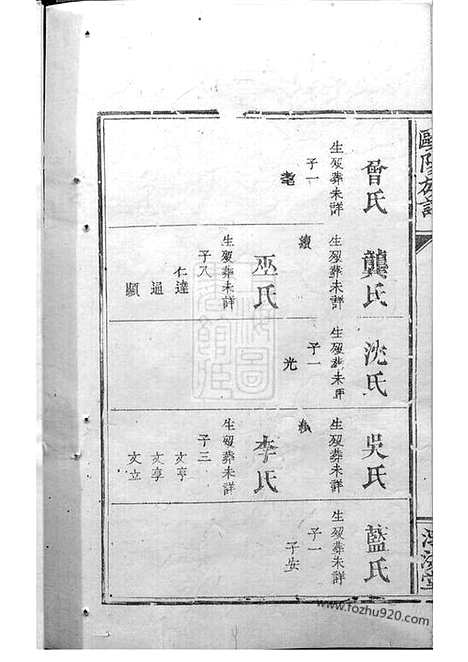 歐陽族譜
曾氏
生歿葬未詳
子一
耄
龔氏
生歿葬未詳
續
巫氏
生歿葬未詳
子八
仁達
通
顯
沈氏
生歿葬未詳
子一
光
吳氏
生歿葬未詳
李氏
生歿葬未詳
子三
文亨
文享
文立
藍氏
生歿葬未詳
子一
子安
www.fozhu920.com